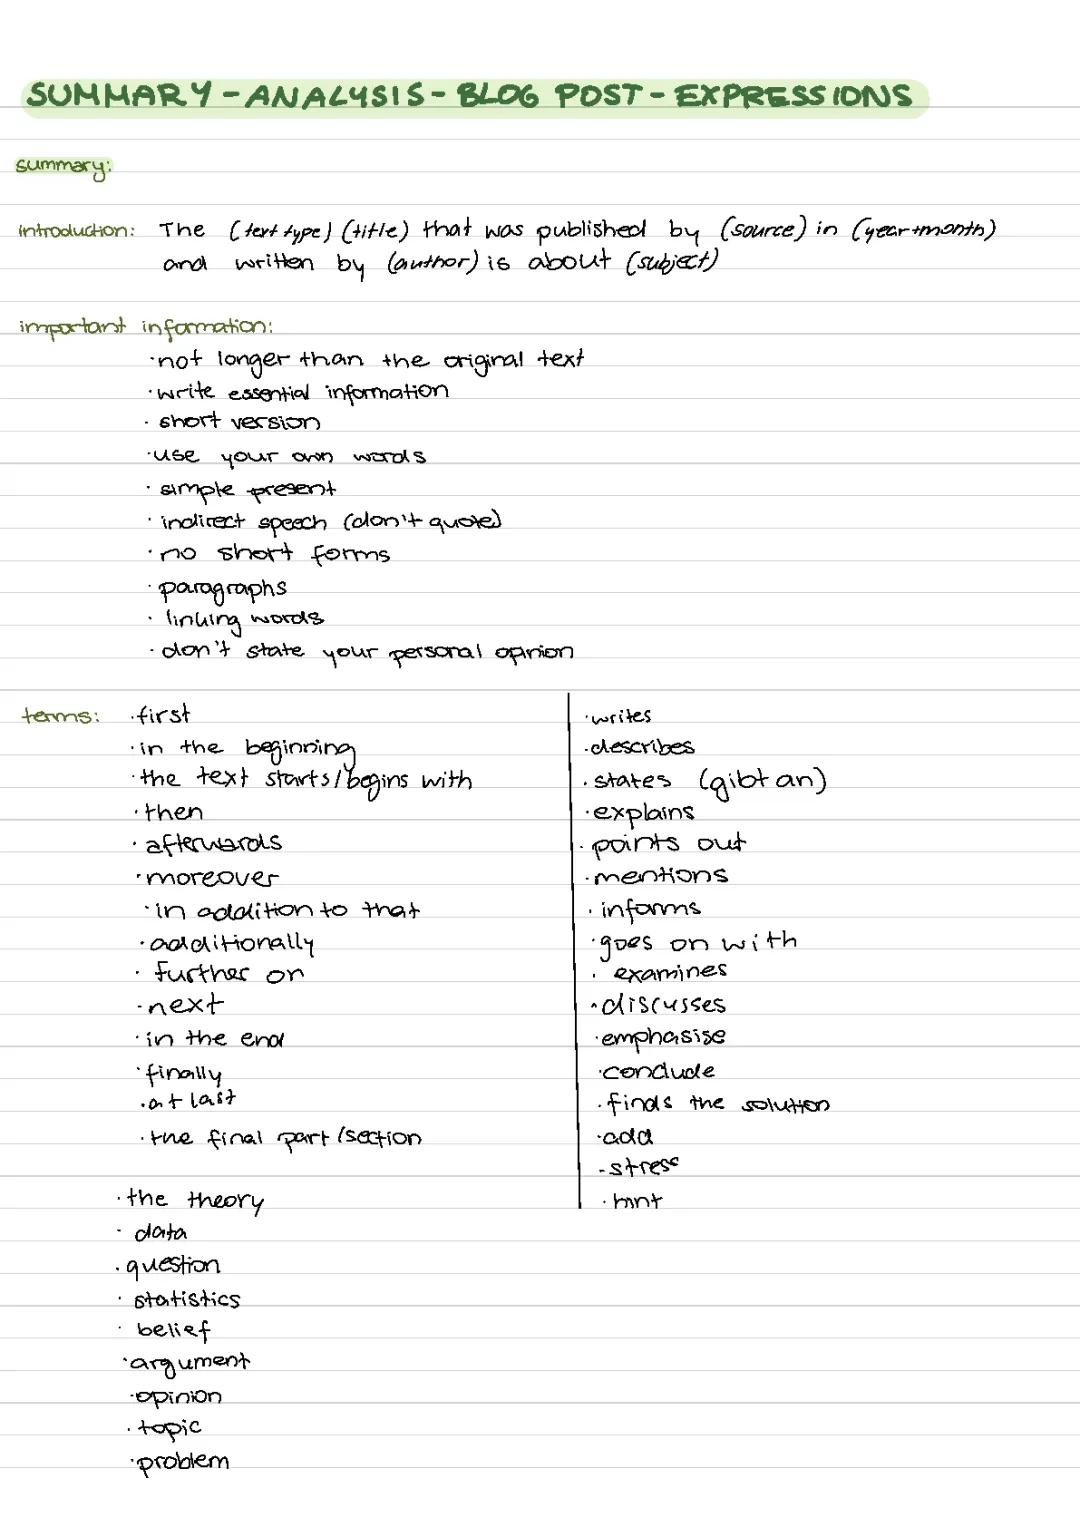 SUMMARY - ANALYSIS - BLOG POST - EXPRESSIONS
summary:
introduction: The (text type) (title) that was published by (source) in (year+month)
and written by (author) is about (subject)
important information:
·not longer than the original text
·write essential information
·short version
·use your own words
·simple present
·indirect speech (don't quote)
·no short forms
·paragraphs
·linking words
·don't state your personal opinion
terms: ·first
·in the beginning
·the text starts/begins with
·then
·afterwards
·moreover
·in addition to that
·additionally
·further on
·next
·in the end
·finally
·at last
·the final part/section
·writes
·describes
·states (gibt an)
·explains
·points out
·mentions
·informs
·goes on with
·examines
·discusses
·emphasise
·conclude
·finds the solution
·add
·stress
·hint
·the theory
·data
·question
·statistics
·belief
·argument
·opinion
·topic
·problem